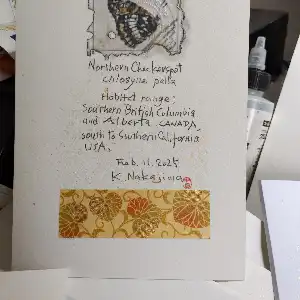 Northern Checkerspot
chlosyne palla
Habitat range:
Southern British Columbia
and Alberta CANADA,
south to Southern California
USA.
Feb. 11, 2025
K. Nakajima